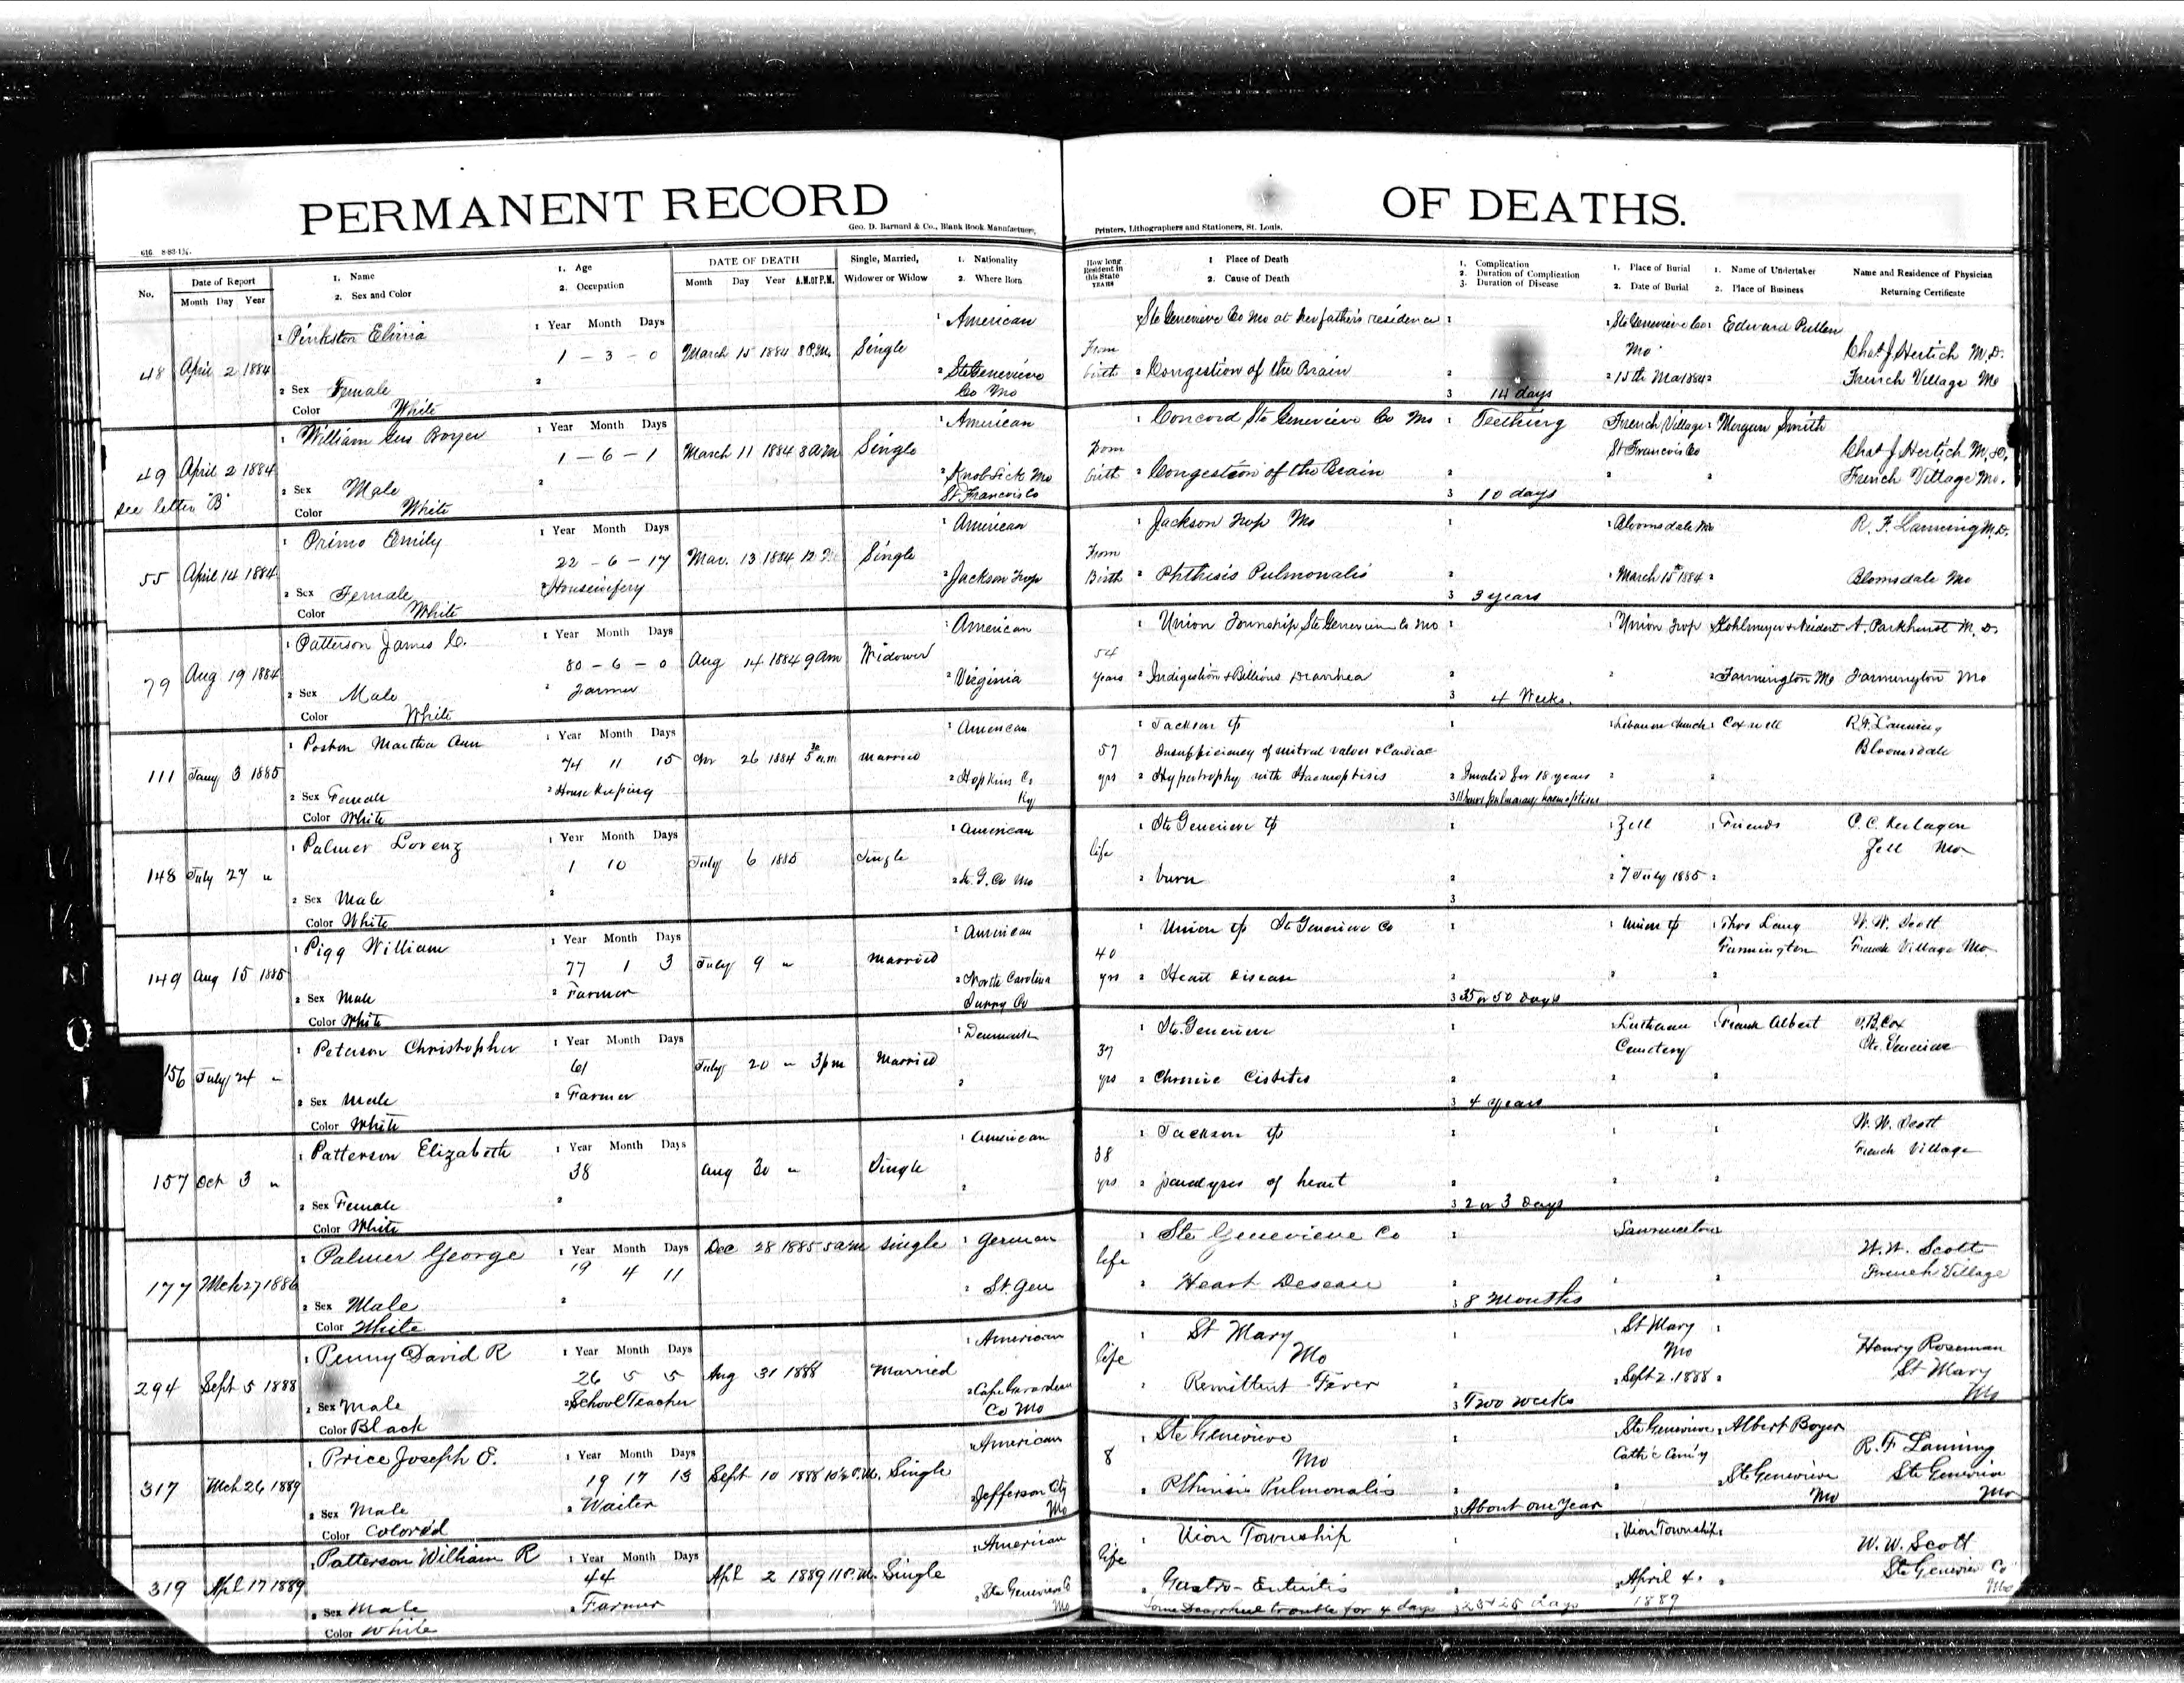 PERMANENT RECORD OF DEATHS.
Geo. D. Barnard & Co., Blank Book Manufacturers, Printers, Lithographers and Stationers, St. Louis.
616 8-83-1½.
No.
Date of Report
Month Day Year
1. Name
2. Sex and Color
1. Age
2. Occupation
DATE OF DEATH
Month Day Year A.M. or P.M.
Single, Married,
Widower or Widow
1. Nationality
2. Where Born
How long
Resident in
this State
YEARS
1 Place of Death
2. Cause of Death
1. Complication
2. Duration of Complication
3. Duration of Disease
1. Place of Burial
2. Date of Burial
1. Name of Undertaker
2. Place of Business
Name and Residence of Physician
Returning Certificate
48 April 2 1884
1 Pinkston
2 Sex Female
Color White
1 Year Month Days
1 - 3 - 0
2
March 15 1884 8 P.M.
Single
1 American
2 Ste Genevieve
Co Mo
From
birth
1 Ste Genevieve Co Mo at her father's residence
2 Congestion of the Brain
1
2
3 14 days
1 Ste Genevieve Co
Mo
2 15th Ma 1884
1 Edward Pullen
2
Chas J. Hertich M.D.
French Village Mo
49 April 2 1884
see letter "B"
1 William Gus Boyer
2 Sex Male
Color White
1 Year Month Days
1 - 6 - 1
2
March 11 1884 3 A.M.
Single
1 American
2 Knob Lick Mo
St Francois Co
From
birth
1 Concord Ste Genevieve Co Mo
2 Congestion of the Brain
1 Teething
2
3 10 days
French Village
St Francois Co
2
1 Morgan Smith
2
Chas J. Hertich M.D.
French Village Mo.
55 April 14 1884
1 Primo Emily
2 Sex Female
Color White
1 Year Month Days
22 - 6 - 17
2 Housewifery
Mar. 13 1884 12
Single
1 American
2 Jackson Twp
From
Birth
1 Jackson Twp Mo
2 Phthisis Pulmonalis
1
2
3 3 years
1 Bloomsdale Mo
March 15th 1884
2
R. F. Lanning M.D.
Blomsdale Mo
79 Aug 19 1884
1 Patterson James
2 Sex Male
Color White
1 Year Month Days
80 - 6 - 0
2 Farmer
Aug 14 1884 9 am
Widower
1 American
2 Virginia
54
years
1 Union Township Ste Genevieve Co Mo
2 Indigestion & Billious Diarrhea
1
2
3 4 Weeks.
1 Union Twp
2
Kohlmeyer & Neidert
2 Farmington Mo
A. Parkhurst M.D.
Farmington Mo
111 Jany 3 1885
1 Poston Martha Ann
2 Sex Female
Color White
1 Year Month Days
74 11 15
2 House Keeping
26 1884 5 30 a.m
Married
1 American
2 Hopkins Co
Ky
57
yrs
1 Jackson tp
Insufficiency of mitral valves & Cardiac
2 Hypertrophy with Haemoptisis
1
2 Invalid for 18 years
3
1 Lebanon Church
2
1 Coxwell
2
R.F. Lanning
Bloomsdale
148 July 27 "
1 Palmer Lorenz
2 Sex Male
Color White
1 Year Month Days
1 10
2
July 6 1885
Single
1 American
2 St. G. Co Mo
life
1 Ste Genevieve tp
2 burn
1
2
3
1 Zell
2 7 July 1885
1 Friends
2
Zell Mo
149 Aug 15 1885
1 Pigg William
2 Sex Male
Color White
1 Year Month Days
77 1 3
2 Farmer
July 9 "
Married
1 American
2 North Carolina
Surry Co
40
yrs
1 Union tp Ste Genevieve Co
2 Heart Disease
1
2
3 35 or 50 Days
1 Union tp
2
1 Thos Lang
Farmington
2
W. W. Scott
French Village Mo.
156 July 24 "
1 Peterson Christopher
2 Sex Male
Color White
1 Year Month Days
61
2 Farmer
July 20 " 3 pm
Married
1 Denmark
2
37
yrs
1 Ste. Genevieve
2 Chronic Cistites
1
2
3 4 years
1 Lutheran
Cemetery
2
1 Frank Albert
2
J.B. Cox
Ste. Genevieve
157 Oct 3 "
1 Patterson Elizabeth
2 Sex Female
Color White
1 Year Month Days
38
2
Aug 30 "
Single
1 American
2
38
yrs
1 Jackson tp
2 paralyses of heart
1
2
3 2 or 3 Days
1
2
1
2
W. W. Scott
French Village
177 Mch 27 1886
1 Palmer George
2 Sex Male
Color White
1 Year Month Days
19 4 11
2
Dec 28 1885 5 a.m
single
1 German
2 St. Gen
life
1 Ste Genevieve Co
2 Heart Desease
1
2
3 8 Months
Lawrenceton
2
2
W. W. Scott
French Village
294 Sept 5 1888
1 Penny David R
2 Sex Male
Color Black
1 Year Month Days
26 5 5
2 School Teacher
Aug 31 1888
Married
1 American
2 Cape Girardeau
Co Mo
life
1 St Mary
Mo
2 Remittent Fever
1
2
3 Two weeks
St Mary
Mo
2 Sept 2. 1888
1
2
Henry Roseman
St Mary
Mo
317 Mch 26 1889
1 Price Joseph E.
2 Sex Male
Color Colored
1 Year Month Days
19 17 13
2 Waiter
Sept 10 1888 10½ P.M.
Single
1 American
2 Jefferson City
Mo
8
1 Ste Genevieve
Mo
2 Pthirisis Pulmonalis
1
2
3 About one Year
Ste Genevieve
2
1 Albert Boyer
2 Ste Genevieve
Mo
R. F. Lanning
Ste Genevieve
Mo
319 Apl. 17 1889
1 Patterson William R
2 Sex Male
Color White
1 Year Month Days
44
2 Farmer
Apl 2 1889 11 P.M.
Single
1 American
2 Ste Genevieve Co
Mo
life
1 Uion Township
2 Gastro-Enteritis
Some Diarrheal trouble for 4 days
1
2
3 25 days
1 Uion Township
2 April 4.
1889
1
2
W. W. Scott
Ste Genevieve Co
Mo